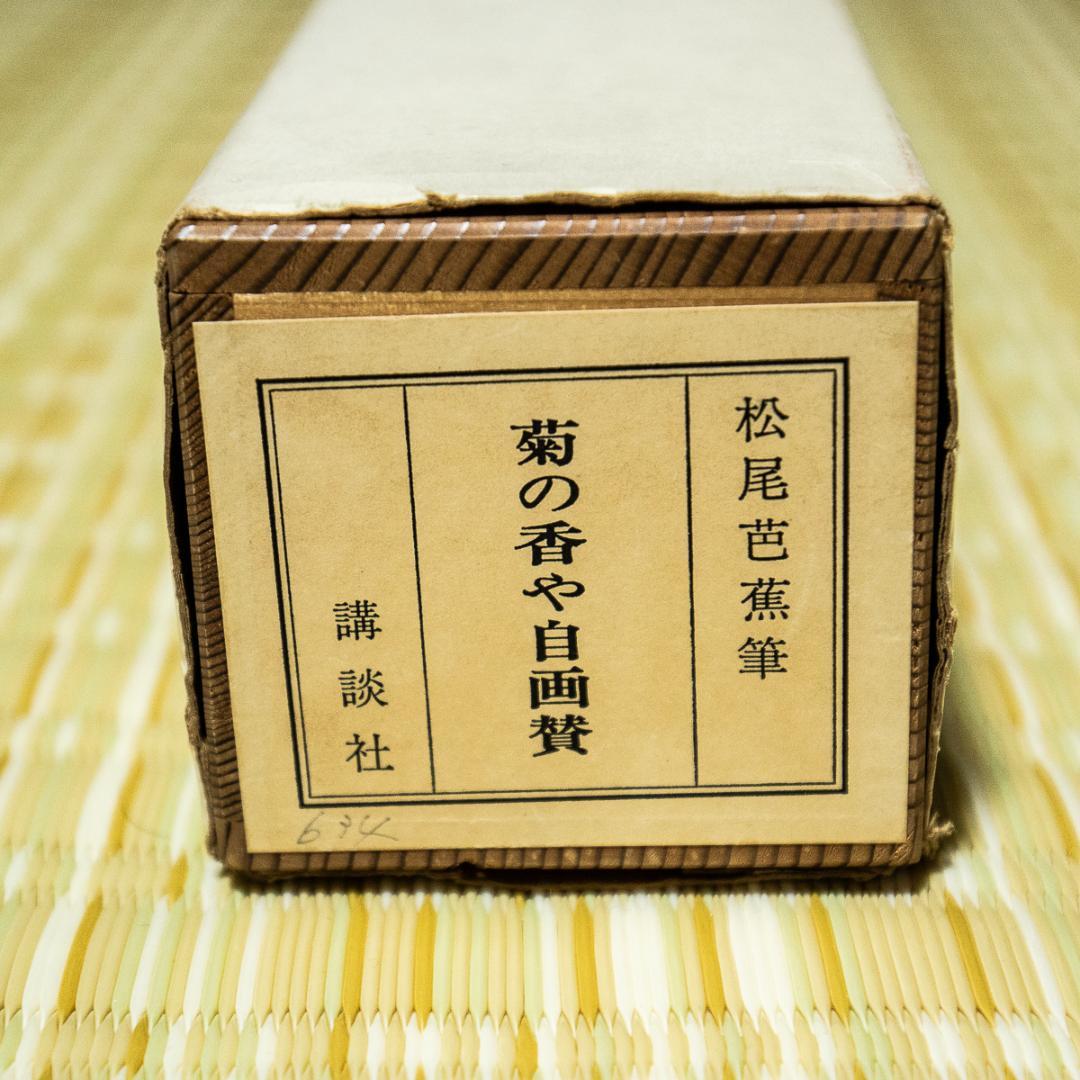 松尾芭蕉筆
菊の香や自画賛
講談社